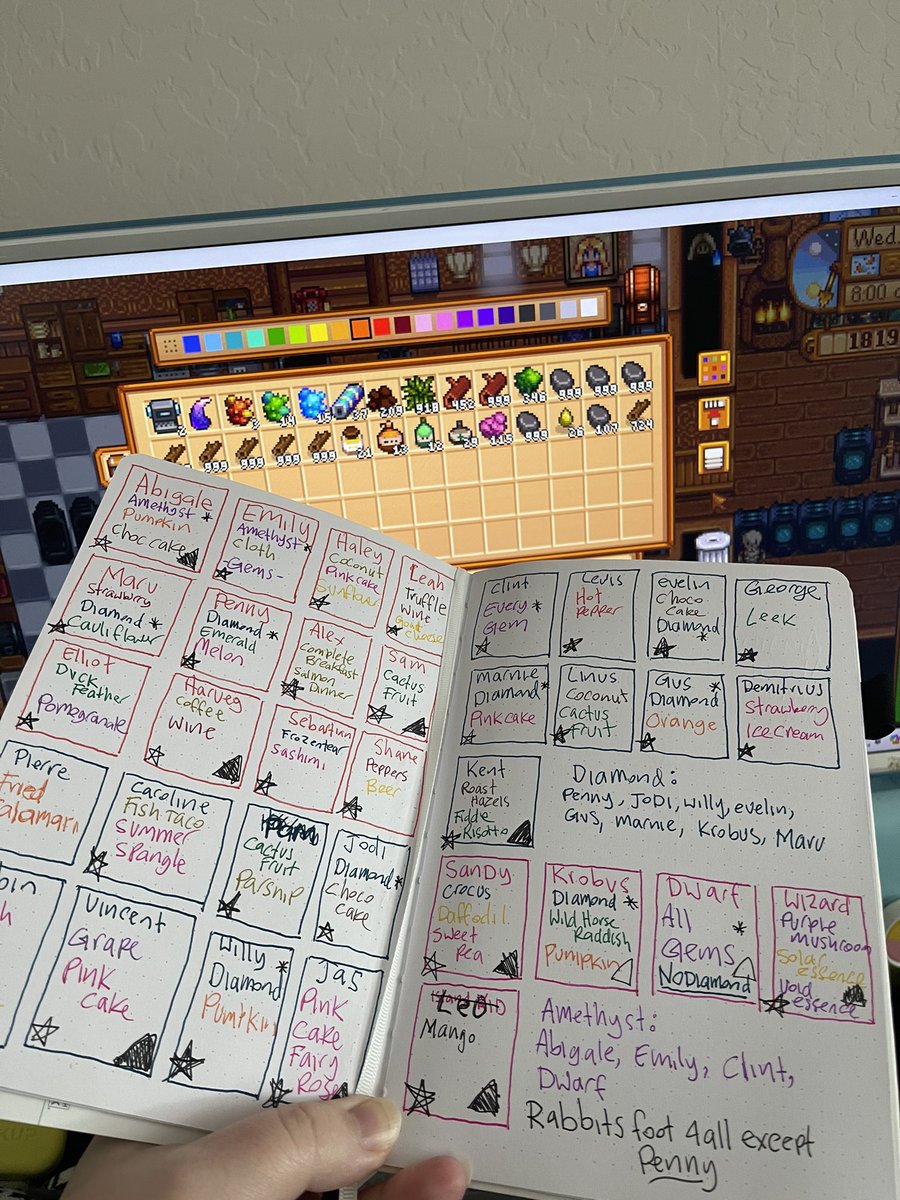 Wed.
8:00
1819
2
3
14
15
37
209
918
452
999
346
999
999
999
999
999
999
999
21
13
12
29
115
999
26
107
724
Abigale
Amethyst *
Pumpkin
Choc cake
Emily
Amethyst *
Cloth
Gems-
Haley
Coconut
Pink cake
Sunflower
Leah
Truffle
Wine
Goat
Cheese
Maru
Strawberry
Diamond *
Cauliflower
Penny
Diamond *
Emerald
Melon
Alex
Complete
Breakfast
Salmon
Dinner
Sam
Cactus
Fruit
Elliot
Duck
Feather
Pomegranate
Harvey
Coffee
Wine
Sebastian
Frozentear
Sashimi
Shane
Peppers
Beer
Pierre
Fried
Calamari
Caroline
Fish Taco
Summer
Spangle
Pam
Cactus
Fruit
Parsnip
Jodi
Diamond *
Choco
Cake
Vincent
Grape
Pink
Cake
Willy *
Diamond
Pumpkin
Jas
Pink
Cake
Fairy
Rose
Clint
Every *
Gem
Lewis
Hot
Pepper
evelin
Choco
Cake
Diamond *
George
Leek
Marnie
Diamond *
Pink cake
Linus
Coconut
Cactus
fruit
Gus *
Diamond
Orange
Demitrius
Strawberry
Ice Cream
Kent
Roast
Hazels
Fiddle
Risotto
Diamond:
Penny, JoDi, willy, evelin,
Gus, marnie, Krobus, Maru
Sandy
Crocus
Daffodil
Sweet
Pea
Krobus
Diamond *
Wild Horse
Raddish
Pumpkin
Dwarf
All *
Gems
No Diamond
Wizard
Purple
mushroom
Solar
essence
Void
essence
Leo
Mango
Amethyst:
Abigale, Emily, Clint,
Dwarf
Rabbits foot 4 all except
Penny